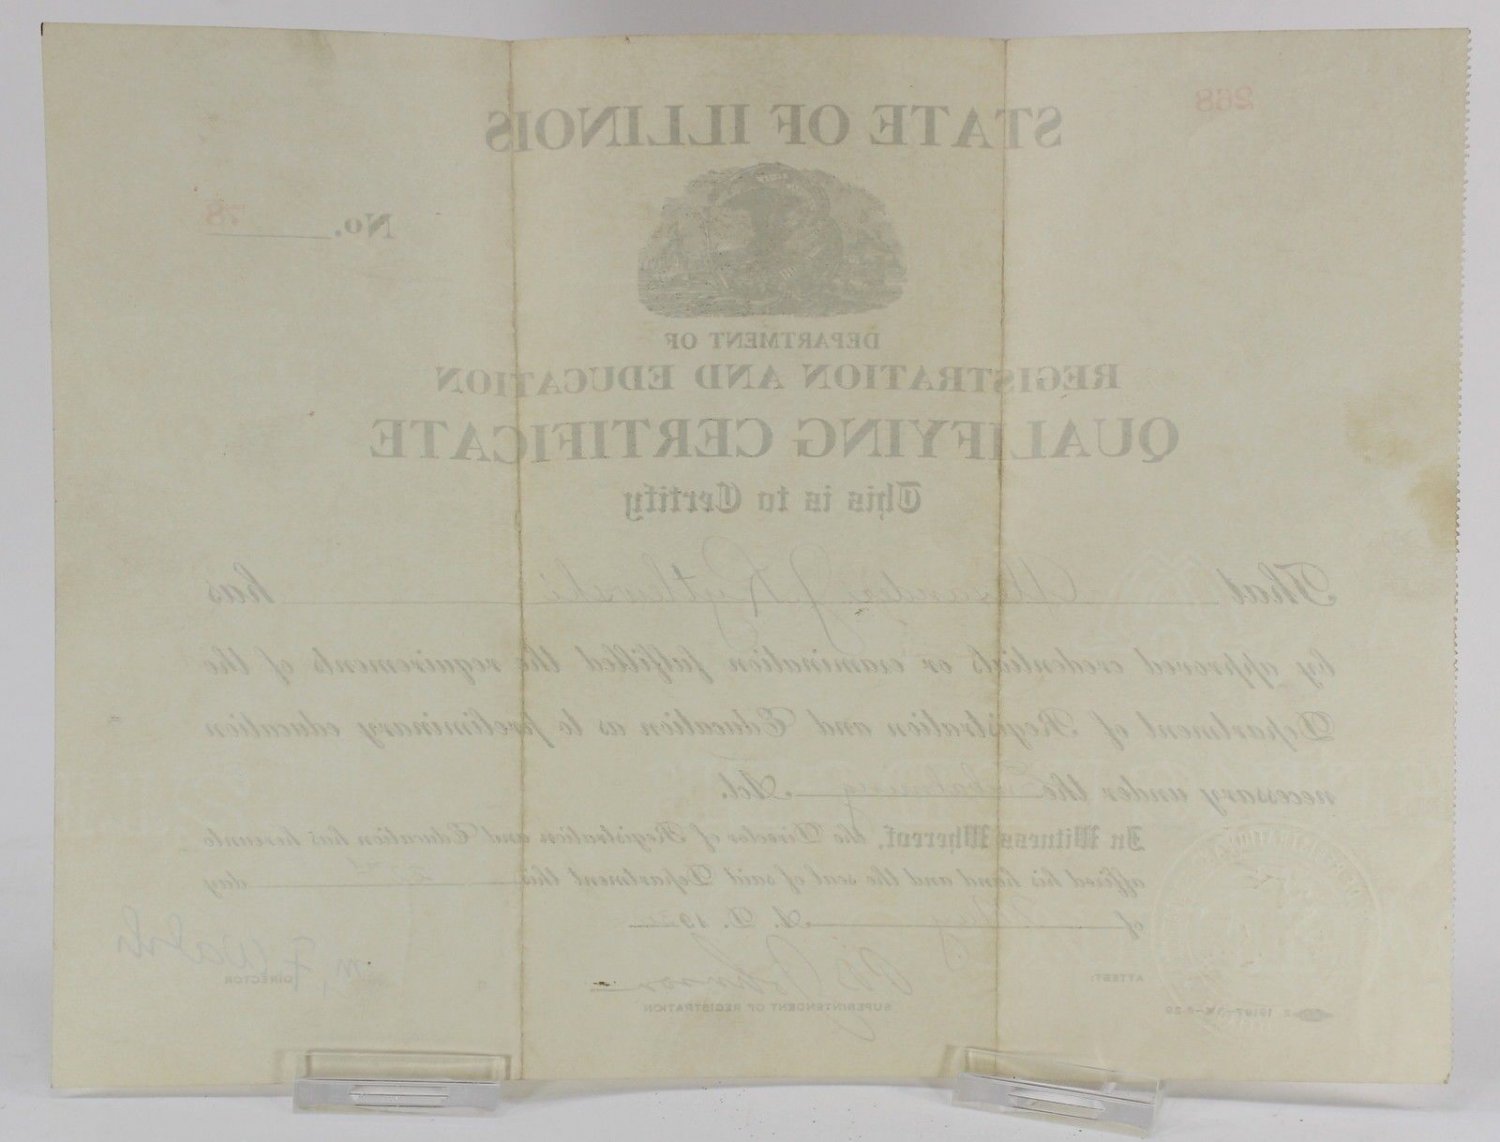 268
STATE OF ILLINOIS
No. 78
DEPARTMENT OF
REGISTRATION AND EDUCATION
QUALIFYING CERTIFICATE
This is to Certify
That Alexander J. has
by approved credentials or examination fulfilled the requirements of the
Department of Registration and Education as to preliminary education
necessary under the Embalming Act.
In Witness Whereof, the Director of Registration and Education has hereunto
affixed his hand and the seal of said Department this day
of A. D. 19
M. F. Walsh
ATTEST:
DIRECTOR
Johnson
SUPERINTENDENT OF REGISTRATION